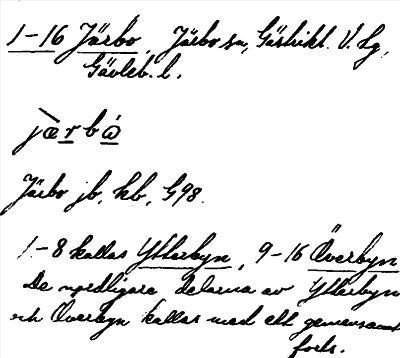 1-16 Järbo, Järbo sn, Gästrikl. V. Lg,
Gävleb. l.
jærbå
Järbo jb, kb, G98.
1-8 kallas Ytterbyn, 9-16 Överbyn
De nordligare delarna av Ytterbyn
och Överbyn kallas med ett gemensamt
forts.